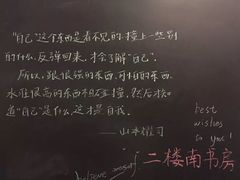 "自己"这个东西是看不见的,撞上一些别
的什么,反弹回来,才会了解"自己".
所以,跟很强的东西、可怕的东西、
水准很高的东西相碰撞,然后才知
道"自己"是什么,这才是自我.
——山本耀司
best
wishes
to you!
二楼南书房
believe yourself